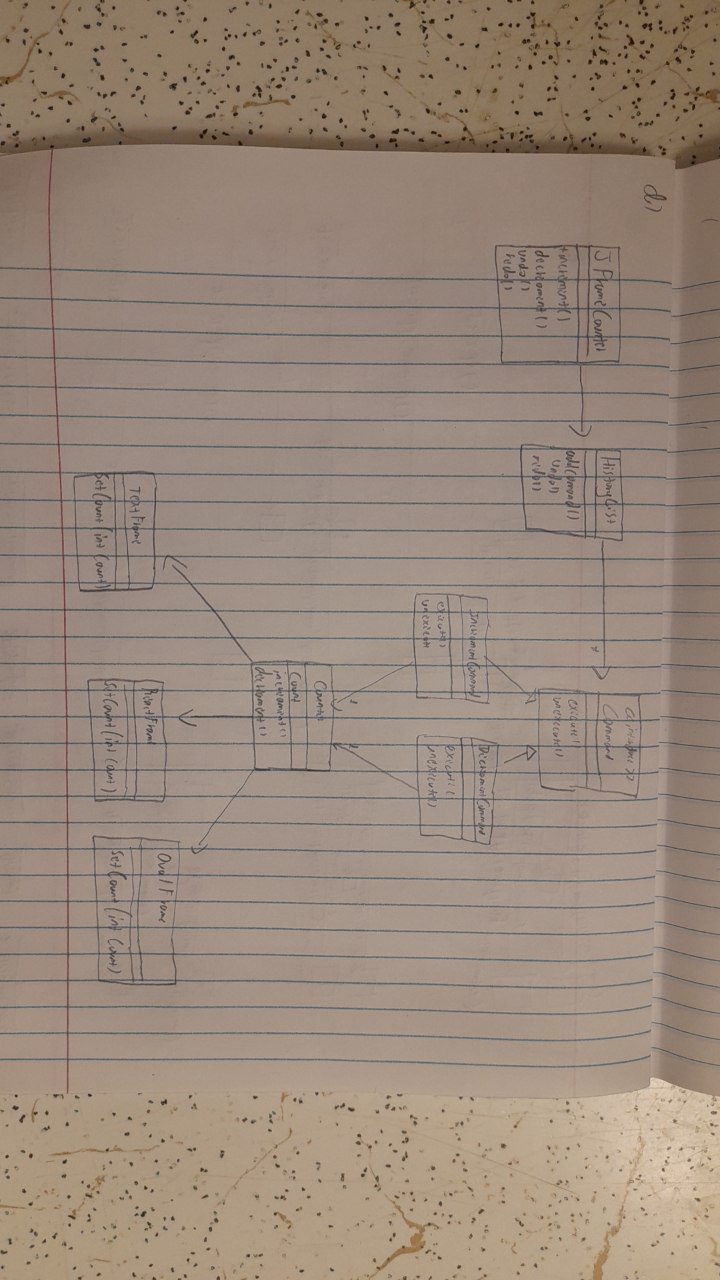 d.)
JFrameCounter
+increment()
decrement()
undo()
redo()
HistoryList
addCommand()
undo()
redo()
*
Command
execute()
unexecute()
IncrementCommand
execute()
unexecute
DecrementCommand
execute()
unexecute()
1
1
Counter
Count
increment()
decrement()
TextFrame
setCount(int Count)
setCount(int Count)
OvalFrame
setCount(int Count)